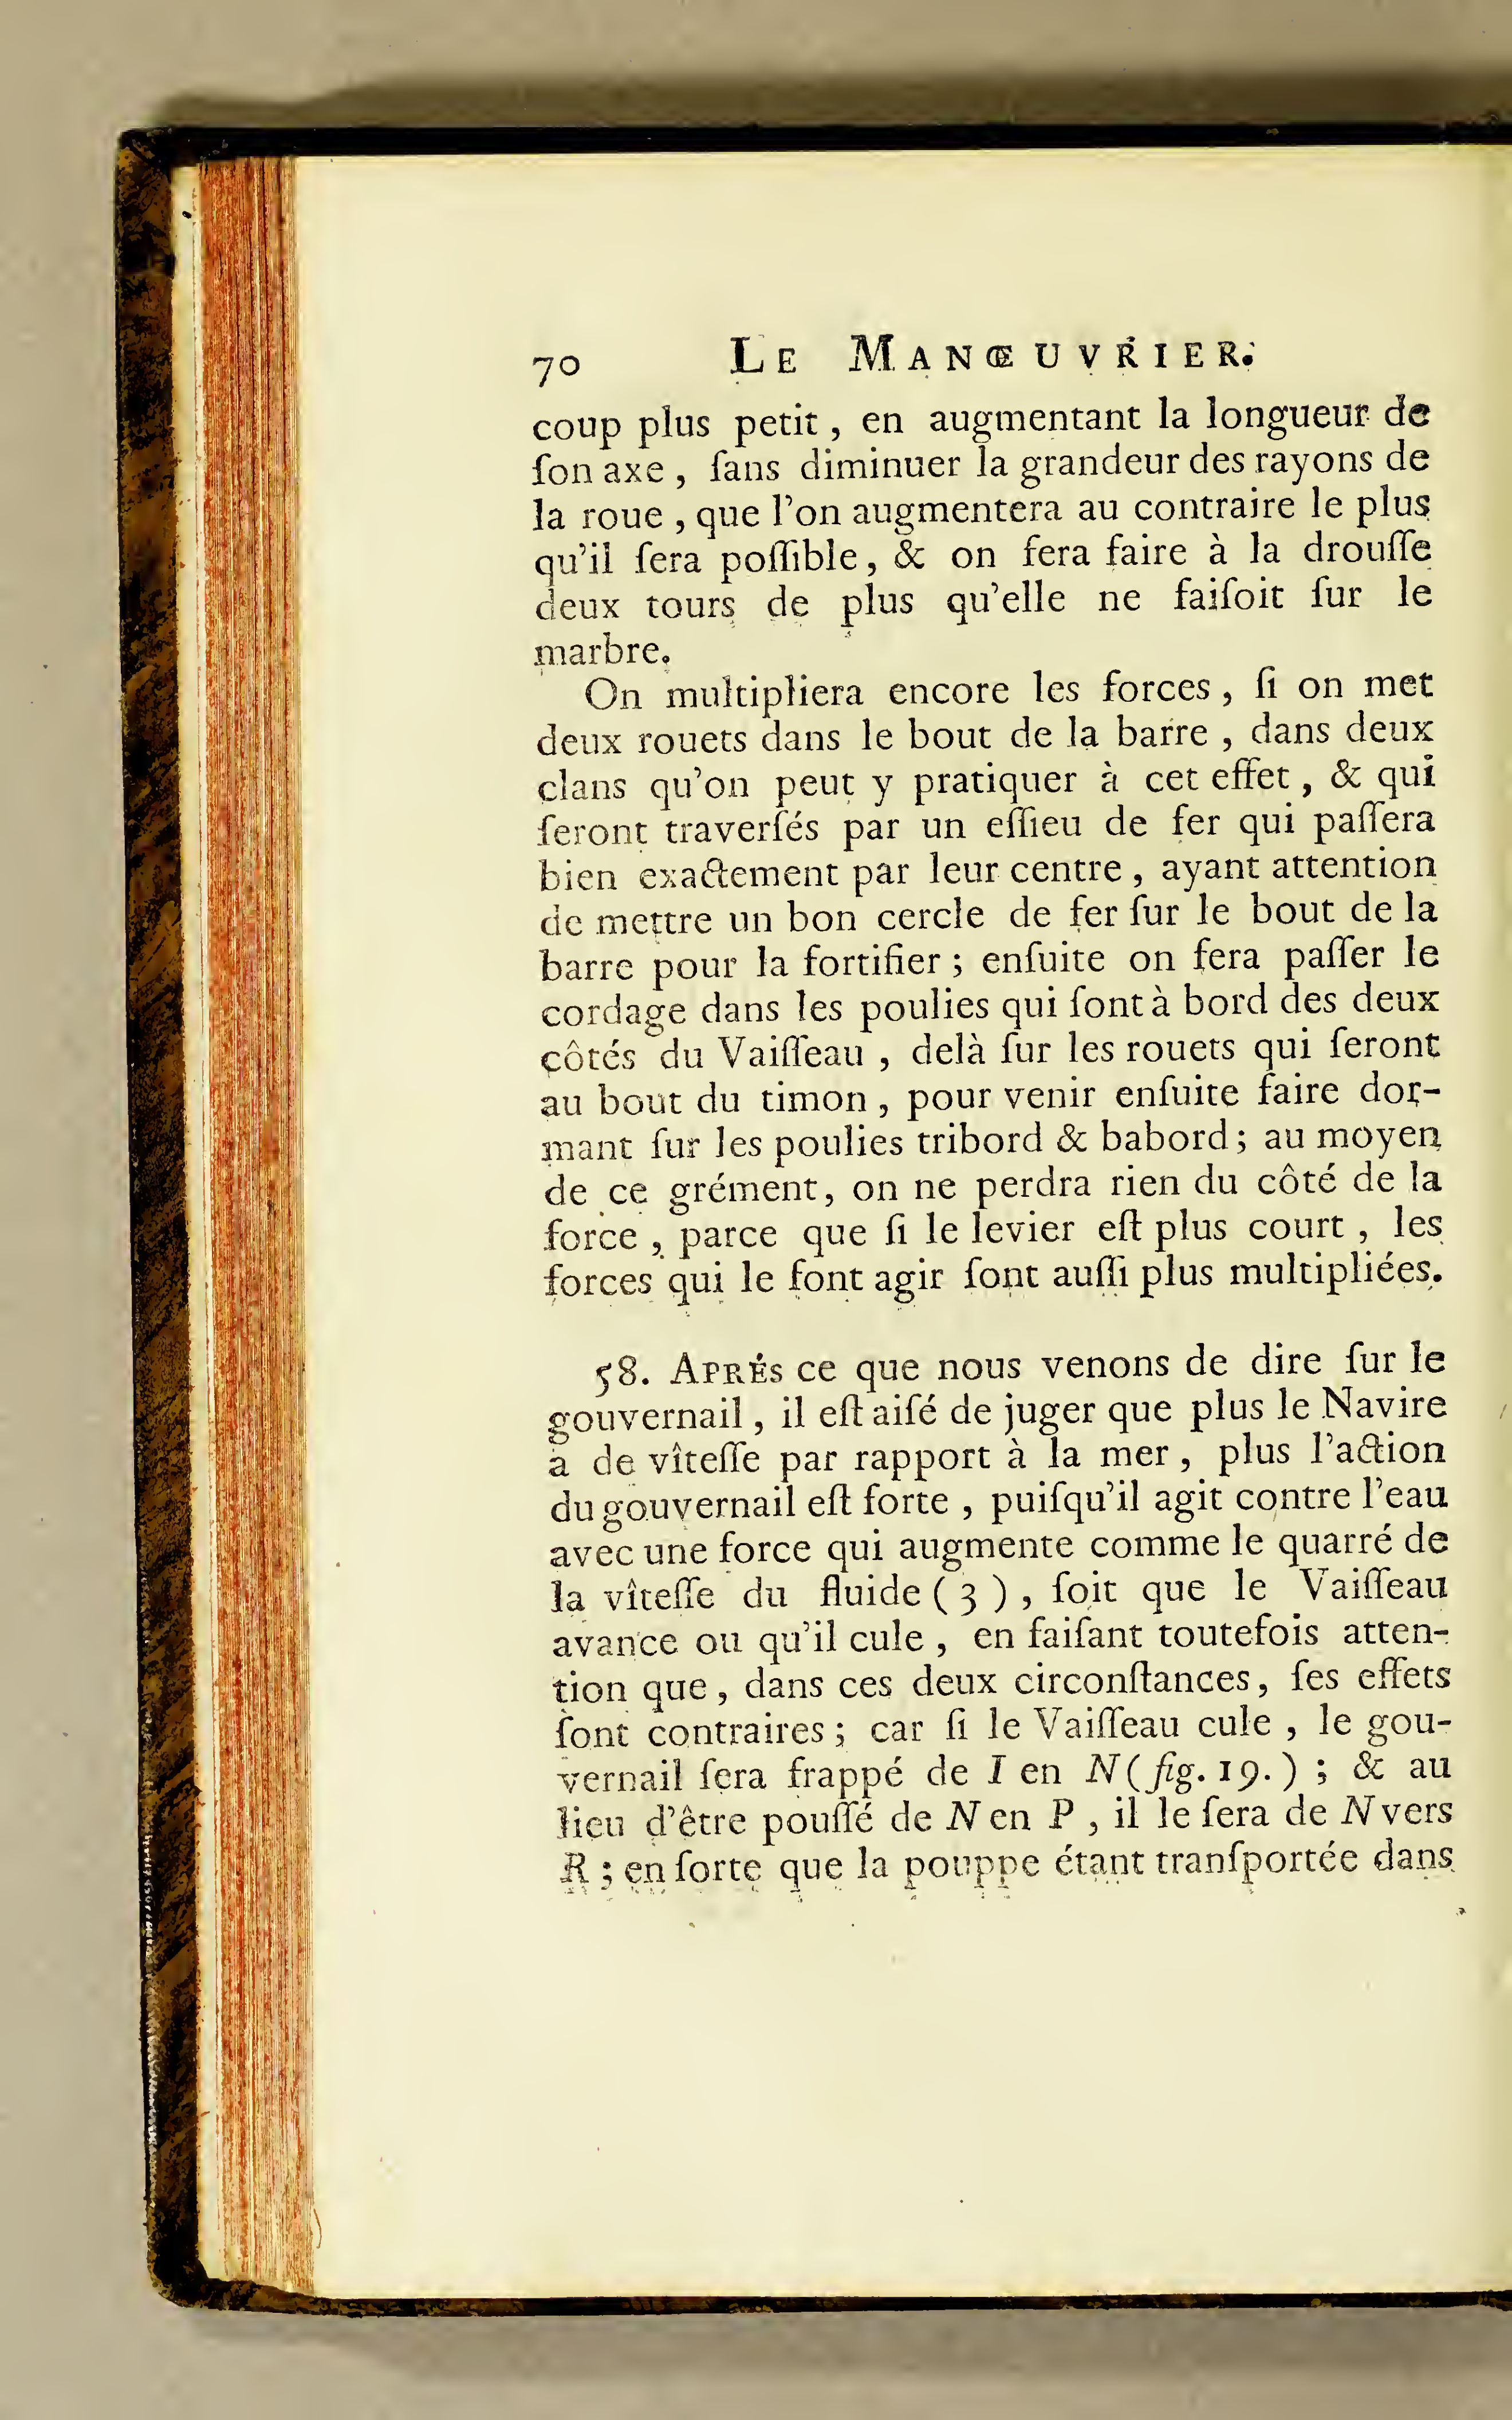 70 LE MANŒUVRIER.
coup plus petit, en augmentant la longueur de
ſon axe, ſans diminuer la grandeur des rayons de
la roue, que l'on augmentera au contraire le plus
qu'il ſera poſſible, & on fera faire à la drouſſe
deux tours de plus qu'elle ne faiſoit ſur le
marbre.
On multipliera encore les forces, ſi on met
deux rouets dans le bout de la barre, dans deux
clans qu'on peut y pratiquer à cet effet, & qui
ſeront traverſés par un eſſieu de fer qui paſſera
bien exactement par leur centre, ayant attention
de mettre un bon cercle de fer ſur le bout de la
barre pour la fortifier; enſuite on fera paſſer le
cordage dans les poulies qui ſont à bord des deux
côtés du Vaiſſeau, delà ſur les rouets qui ſeront
au bout du timon, pour venir enſuite faire dor-
mant ſur les poulies tribord & babord; au moyen
de ce grément, on ne perdra rien du côté de la
force, parce que ſi le levier eſt plus court, les
forces qui le font agir ſont auſſi plus multipliées.
58. APRÉS ce que nous venons de dire ſur le
gouvernail, il eſt aiſé de juger que plus le Navire
a de vîteſſe par rapport à la mer, plus l'action
du gouvernail eſt forte, puiſqu'il agit contre l'eau
avec une force qui augmente comme le quarré de
la vîteſſe du fluide (3), ſoit que le Vaiſſeau
avance ou qu'il cule, en faiſant toutefois atten-
tion que, dans ces deux circonſtances, ſes effets
ſont contraires; car ſi le Vaiſſeau cule, le gou-
vernail ſera frappé de I en N (fig. 19.); & au
lieu d'être pouſſé de N en P, il le ſera de N vers
R; en ſorte que la pouppe étant tranſportée dans